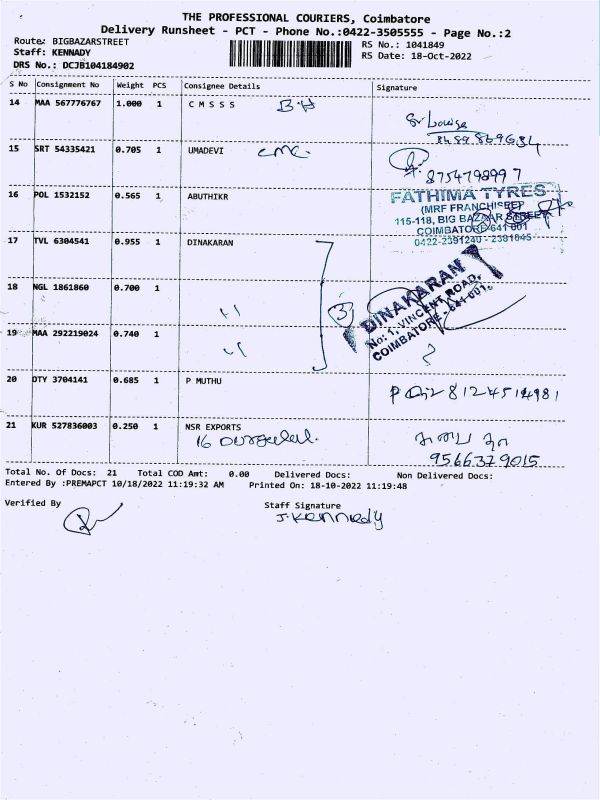 THE PROFESSIONAL COURIERS, Coimbatore
Delivery Runsheet - PCT - Phone No.:0422-3505555 - Page No.:2
Route: BIGBAZARSTREET
Staff: KENNADY
DRS No.: DCJB104184902
RS No.: 1041849
RS Date: 18-Oct-2022
S No Consignment No Weight PCS Consignee Details Signature
14 MAA 567776767 1.000 1 C M S S S B.H
15 SRT 54335421 0.705 1 UMADEVI CMC.
8754798997
16 POL 1532152 0.565 1 ABUTHIKR
FATHIMA TYRES
(MRF FRANCHISEE)
115-118, BIG BAZAAR STREET
COIMBATORE-641 001
0422-2391240 - 2381045
17 TVL 6304541 0.955 1 DINAKARAN
18 NGL 1861860 0.700 1 "
3
DINAKARAN
No: 1, VINCENT ROAD,
COIMBATORE - 641 001.
19 MAA 292219024 0.740 1 "
20 DTY 3704141 0.685 1 P MUTHU
8124514981
21 KUR 527836003 0.250 1 NSR EXPORTS
9566379015
Total No. Of Docs: 21 Total COD Amt: 0.00 Delivered Docs: Non Delivered Docs:
Entered By :PREMAPCT 10/18/2022 11:19:32 AM Printed On: 18-10-2022 11:19:48
Verified By Staff Signature
J.Kennedy